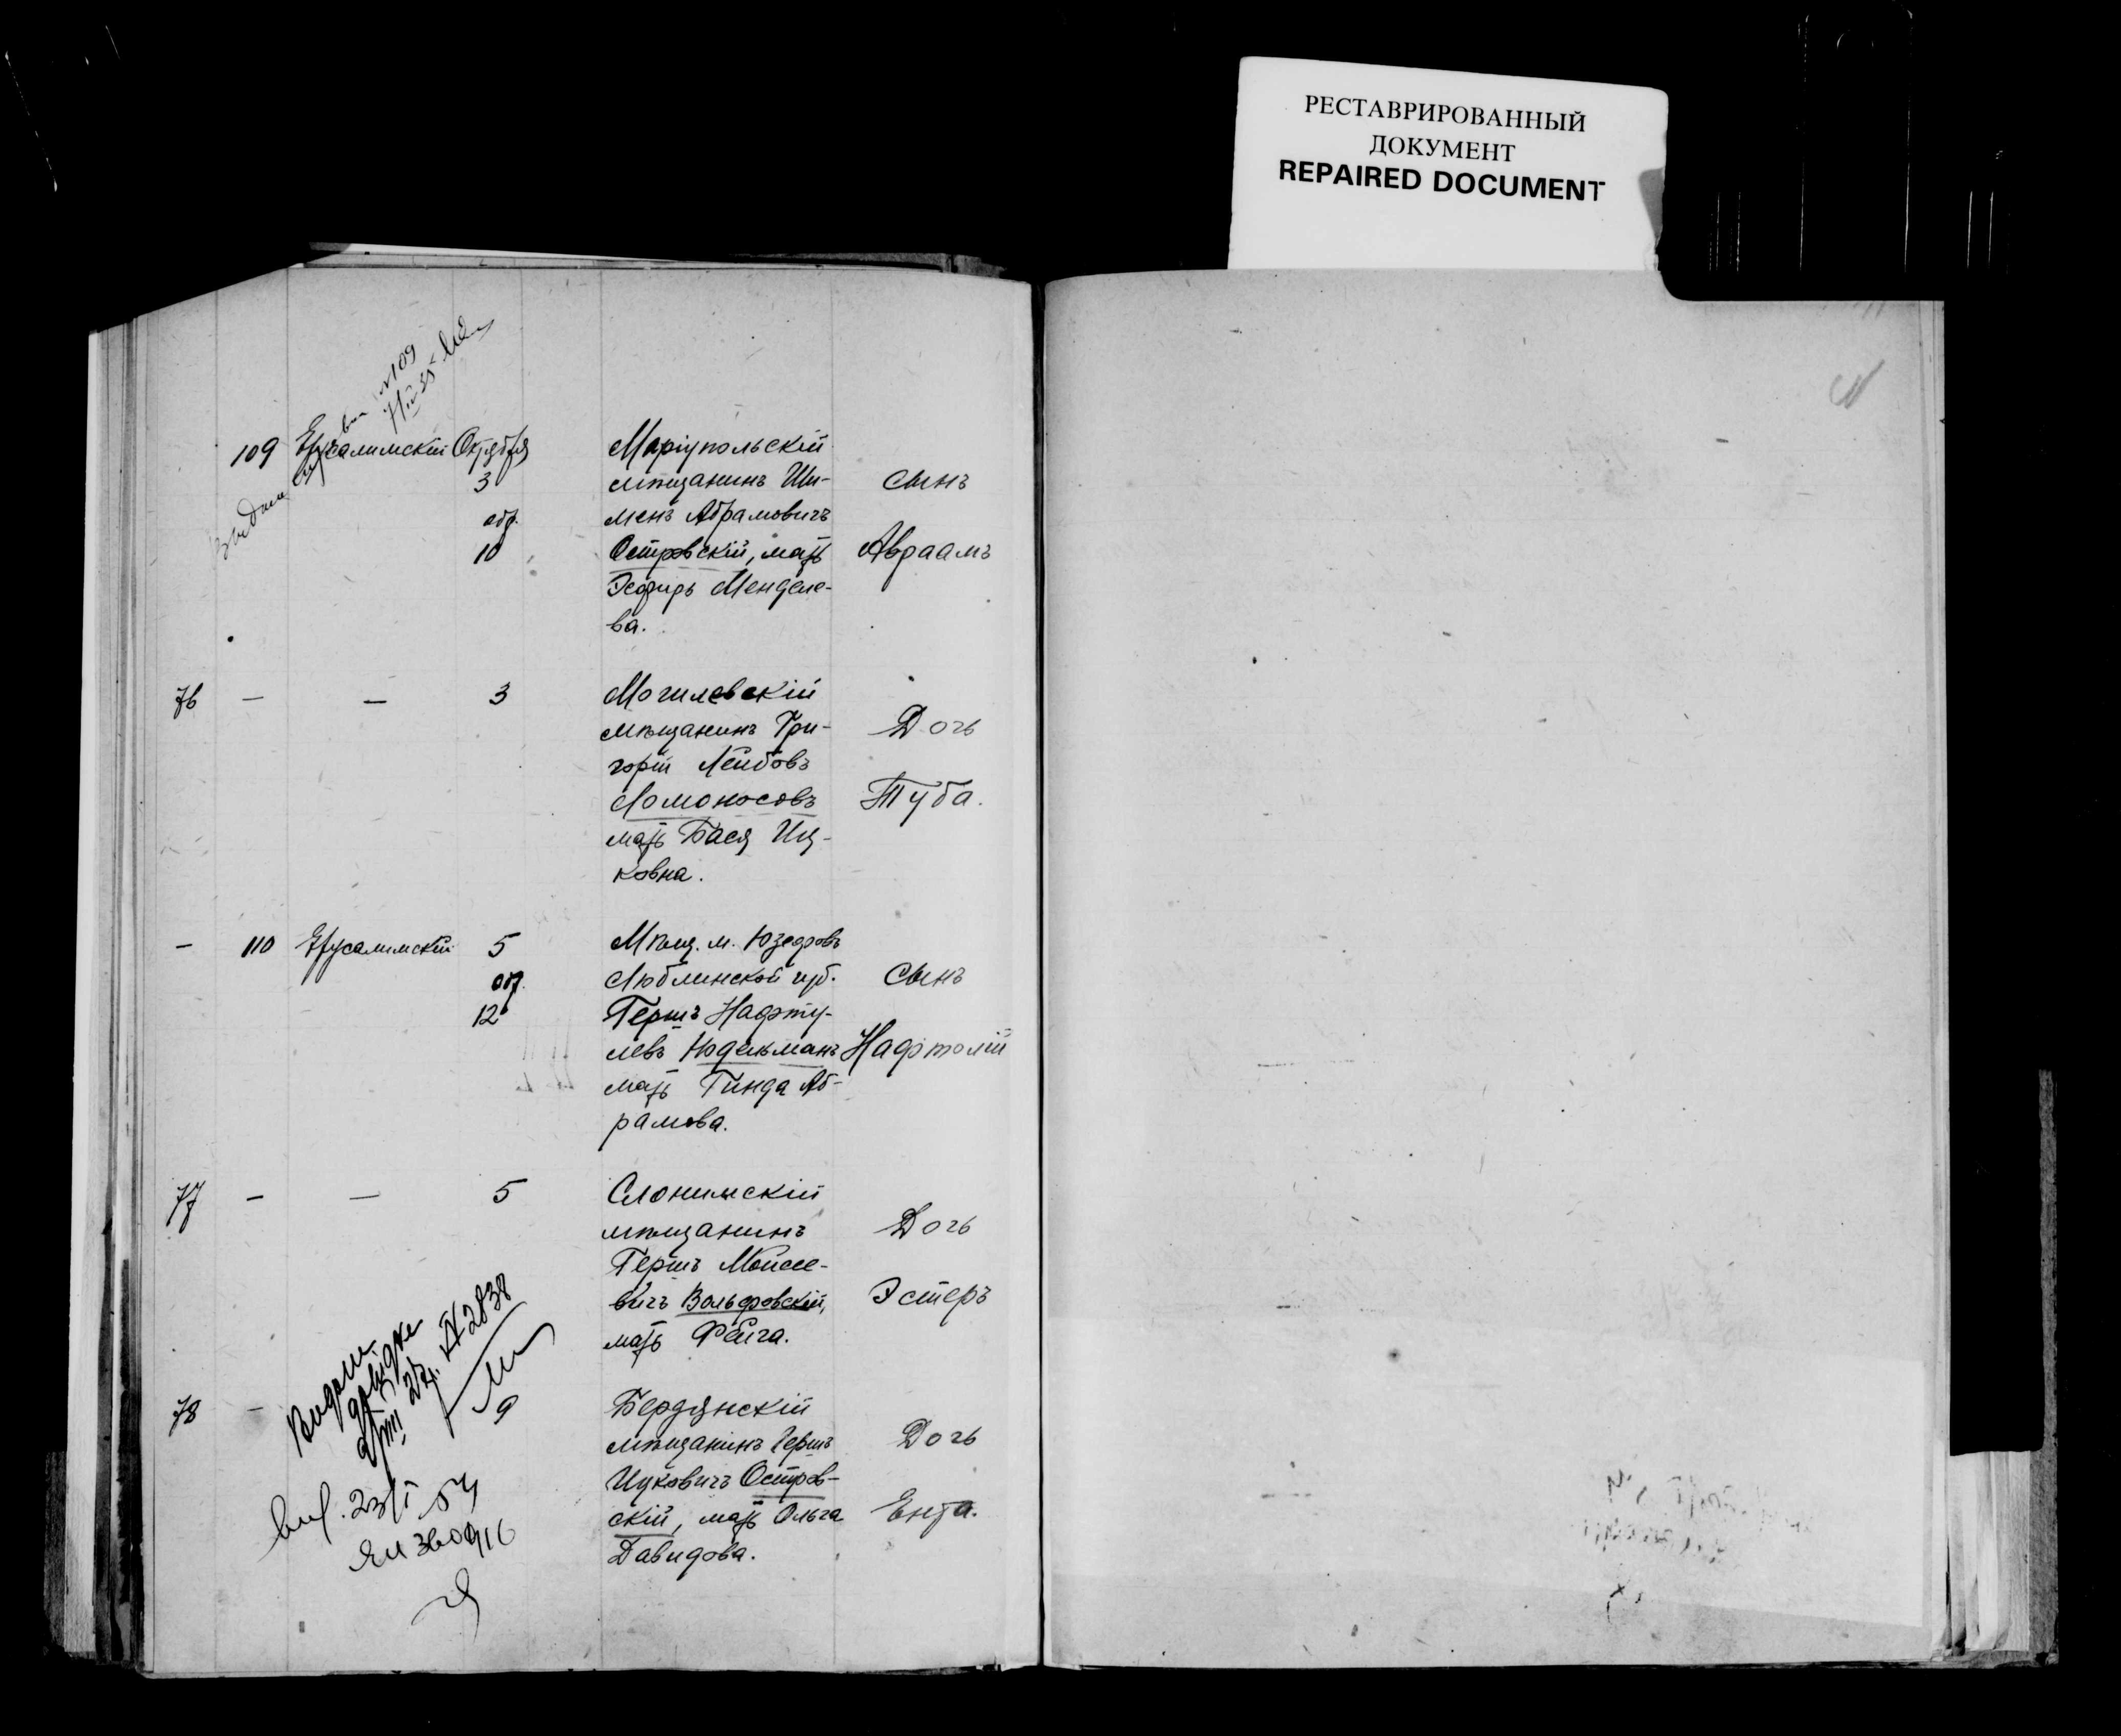 РЕСТАВРИРОВАННЫЙ
ДОКУМЕНТ
REPAIRED DOCUMENT
№109
109 Ерусалимскій Октября
3
обр.
10
Маріупольскій
мѣщанинъ Ши-
менъ Абрамовичъ
Островскій, мать
Эсфирь Менделе-
ва.
Сынъ
Авраамъ
76 — — 3
Могилевскій
мѣщанинъ Гри-
горій Лейбовъ
Ломоносовъ
мать Бася Иц-
ковна.
Дочь
Туба.
— 110 Ерусалимскій 5
обр.
12
Мѣщ. м. Юзефовъ
Люблинской губ.
Гершъ Нафту-
левъ Нодельманъ
мать Гинда Аб-
рамова.
Сынъ
Нафтолій
77 — — 5
Слонимскій
мѣщанинъ
Гершъ Моисее-
вичъ Вольфовскій,
мать Фейга.
Дочь
Эстеръ
78 —
Бердянскій
мѣщанинъ Гершъ
Ицковичъ Остров-
скій, мать Ольга
Давидова.
Дочь
Ента.
№2838
23/I 54